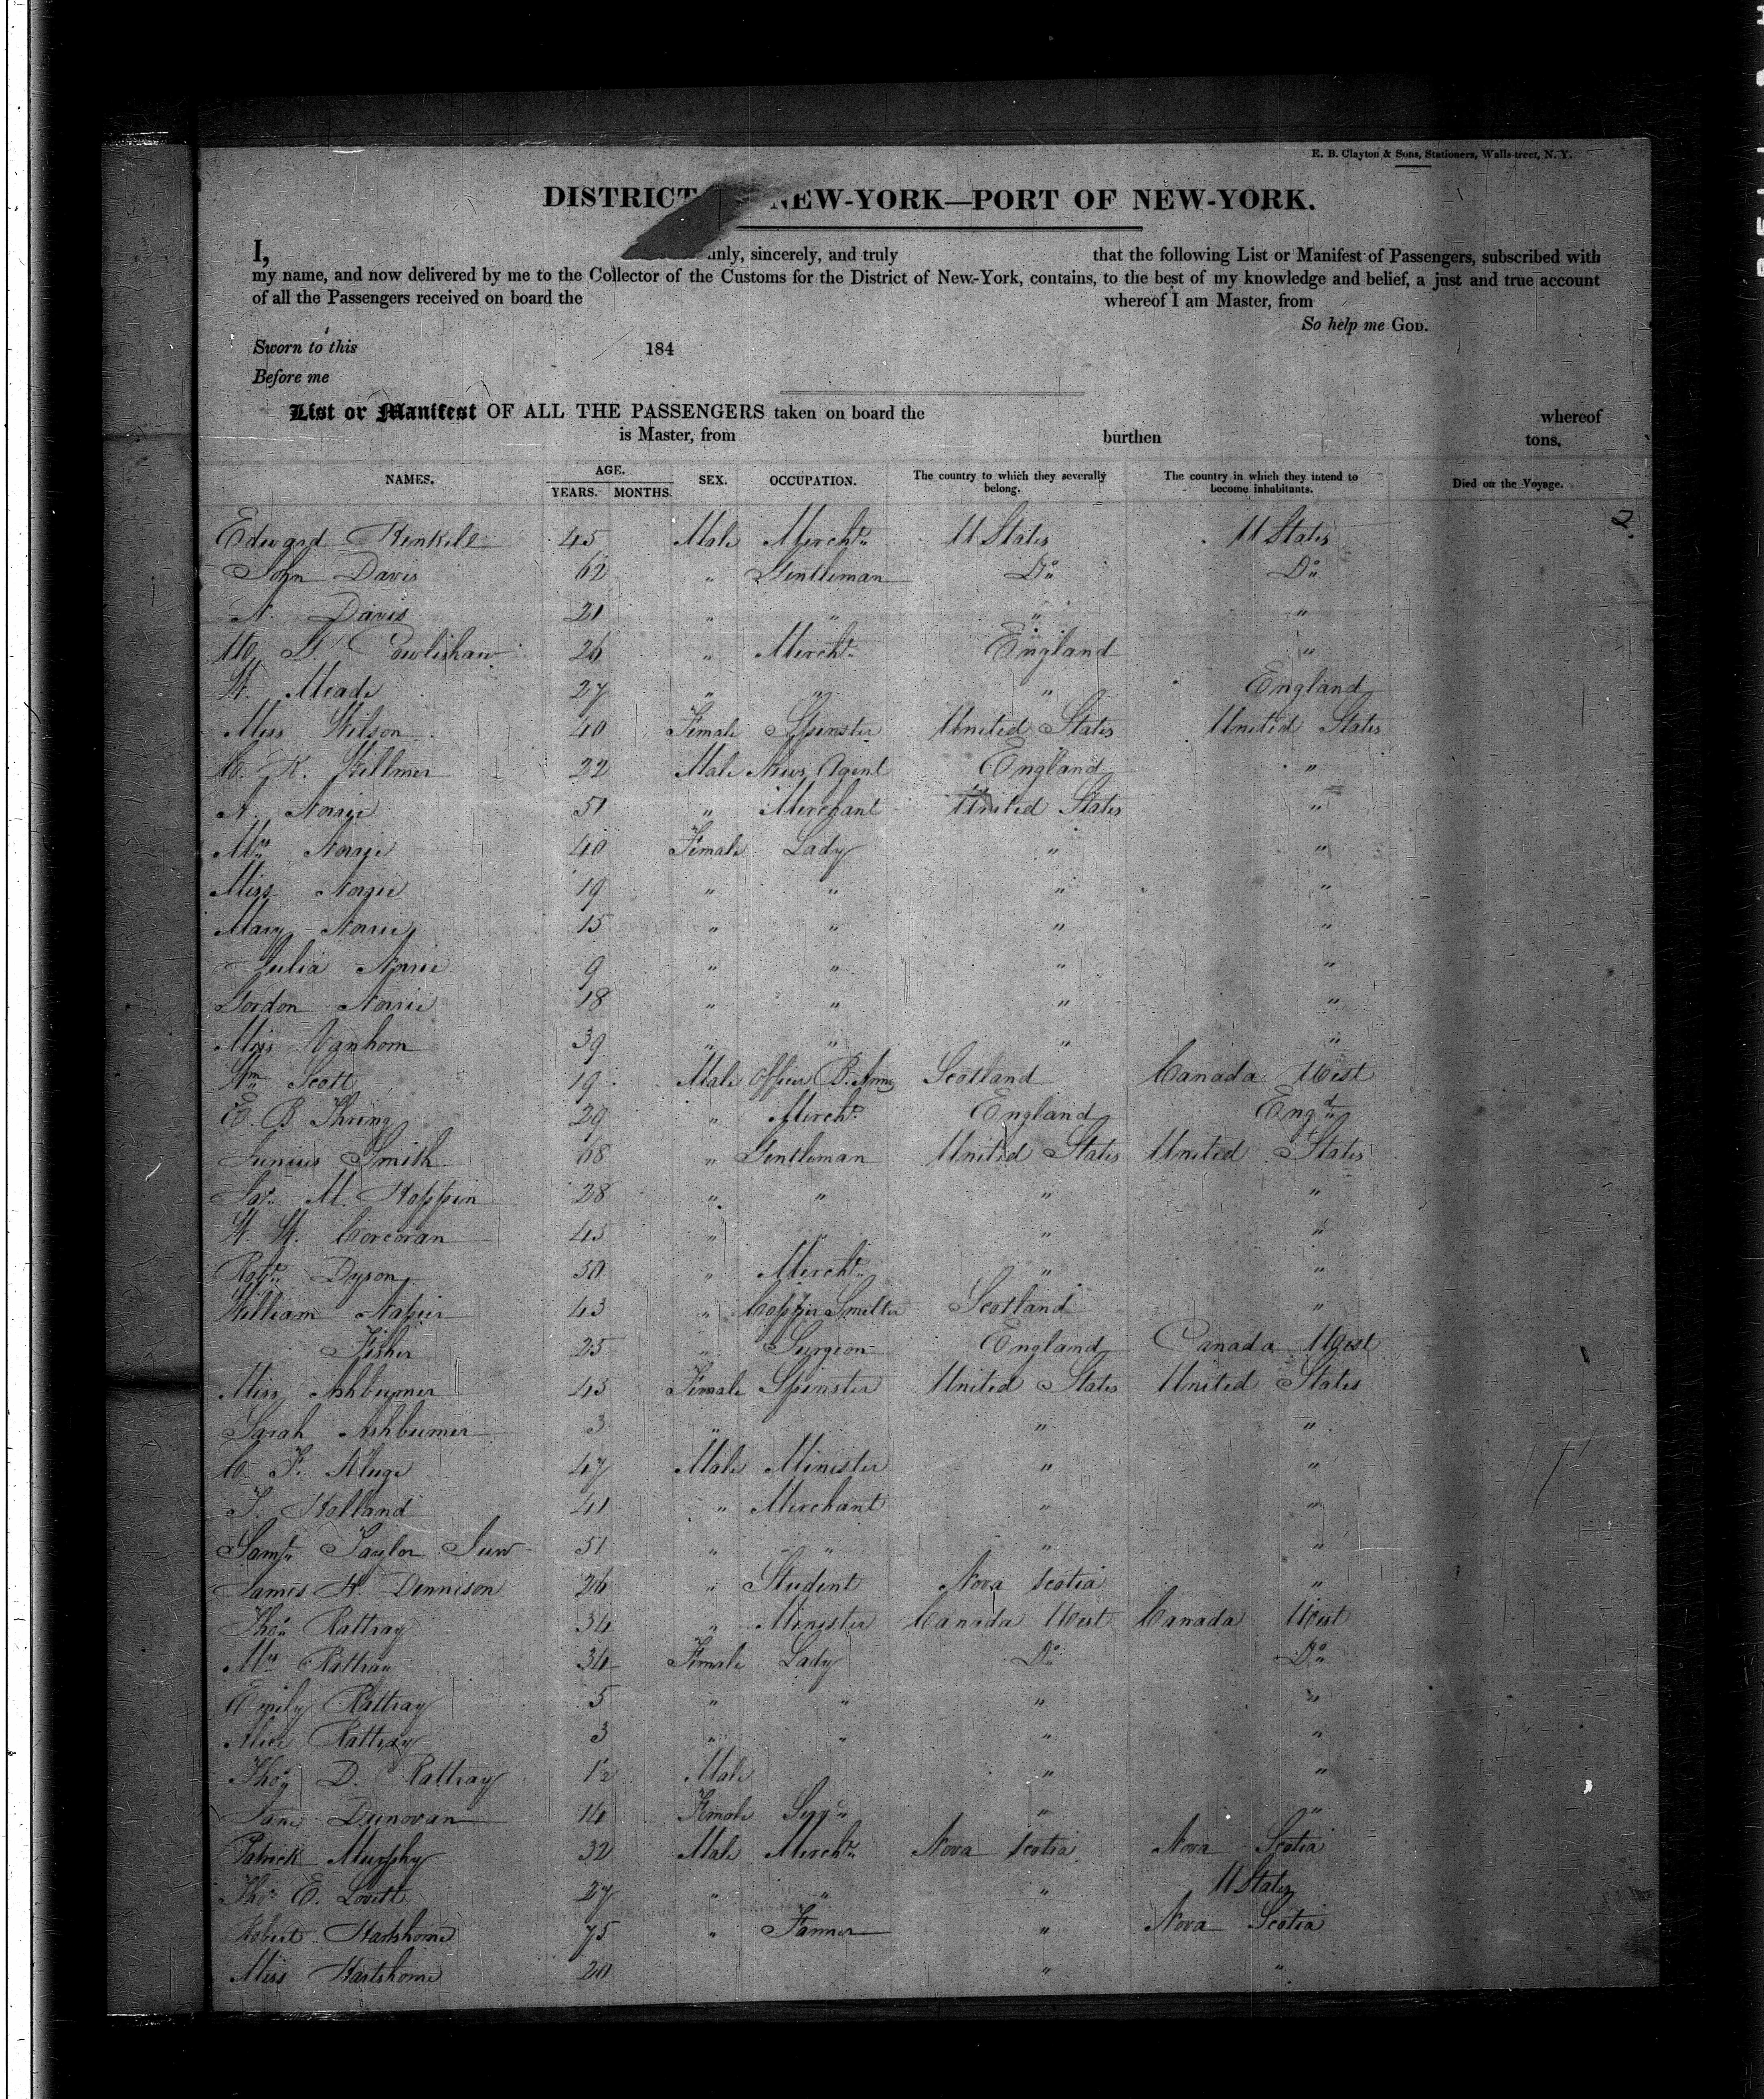 E. B. Clayton & Sons, Stationers, Walls-treet, N. Y.
DISTRICT NEW-YORK—PORT OF NEW-YORK.
I, nly, sincerely, and truly that the following List or Manifest of Passengers, subscribed with
my name, and now delivered by me to the Collector of the Customs for the District of New-York, contains, to the best of my knowledge and belief, a just and true account
of all the Passengers received on board the whereof I am Master, from
So help me GOD.
Sworn to this 184
Before me
List or Manifest OF ALL THE PASSENGERS taken on board the whereof
is Master, from burthen tons.
NAMES. AGE. YEARS. MONTHS. SEX. OCCUPATION. The country to which they severally belong. The country in which they intend to become inhabitants. Died on the Voyage.
2
Edward Henkell 45 Male Mercht. U States U States
John Davis 62 " Gentleman Do Do
N. Davis 21 " " " "
G. Cowlishaw 26 " Mercht. England "
W. Meade 27 " " " England
Miss Wilson 40 Female Spinster United States United States
C. K. Willmer 22 Male News Agent England "
A. Norrie 51 " Merchant United States "
Mrs Norrie 40 Female Lady " "
Miss Norrie 19 " " " "
Mary Norrie 15 " " " "
Julia Norrie 9 " " " "
Gordon Norrie 18 " " " "
Miss Vanhorn 39 " " " "
Wm Scott 19 Male Officer B. Army Scotland Canada West
E. B Thring 29 " Mercht. England Engd
Junius Smith 68 " Gentleman United States United States
Jas. M. Hoppin 28 " " " "
W. W. Corcoran 45 " " " "
Robt. Dyson 50 " Mercht. " "
William Napier 43 " Copper Smelter Scotland "
Fisher 25 " Surgeon England Canada West
Miss Ashburner 43 Female Spinster United States United States
Sarah Ashburner 3 " " "
C. F. Kluge 47 Male Minister " "
T. Holland 41 " Merchant " "
Saml. Taylor Junr 51 " " " "
James H. Dennison 26 " Student Nova Scotia "
Thos Rattray 34 " Minister Canada West Canada West
Mrs Rattray 34 Female Lady Do Do
Emily Rattray 5 " " " "
Alice Rattray 3 " " " "
Thos D. Rattray 1½ Male " "
Jane Dunovan 14 Female Servt. " "
Patrick Murphy 32 Male Mercht. Nova Scotia Nova Scotia
Thos E. Lovett 27 " " " U States
Robert Hartshorne 75 " Farmer " Nova Scotia
Miss Hartshorne 20 " "